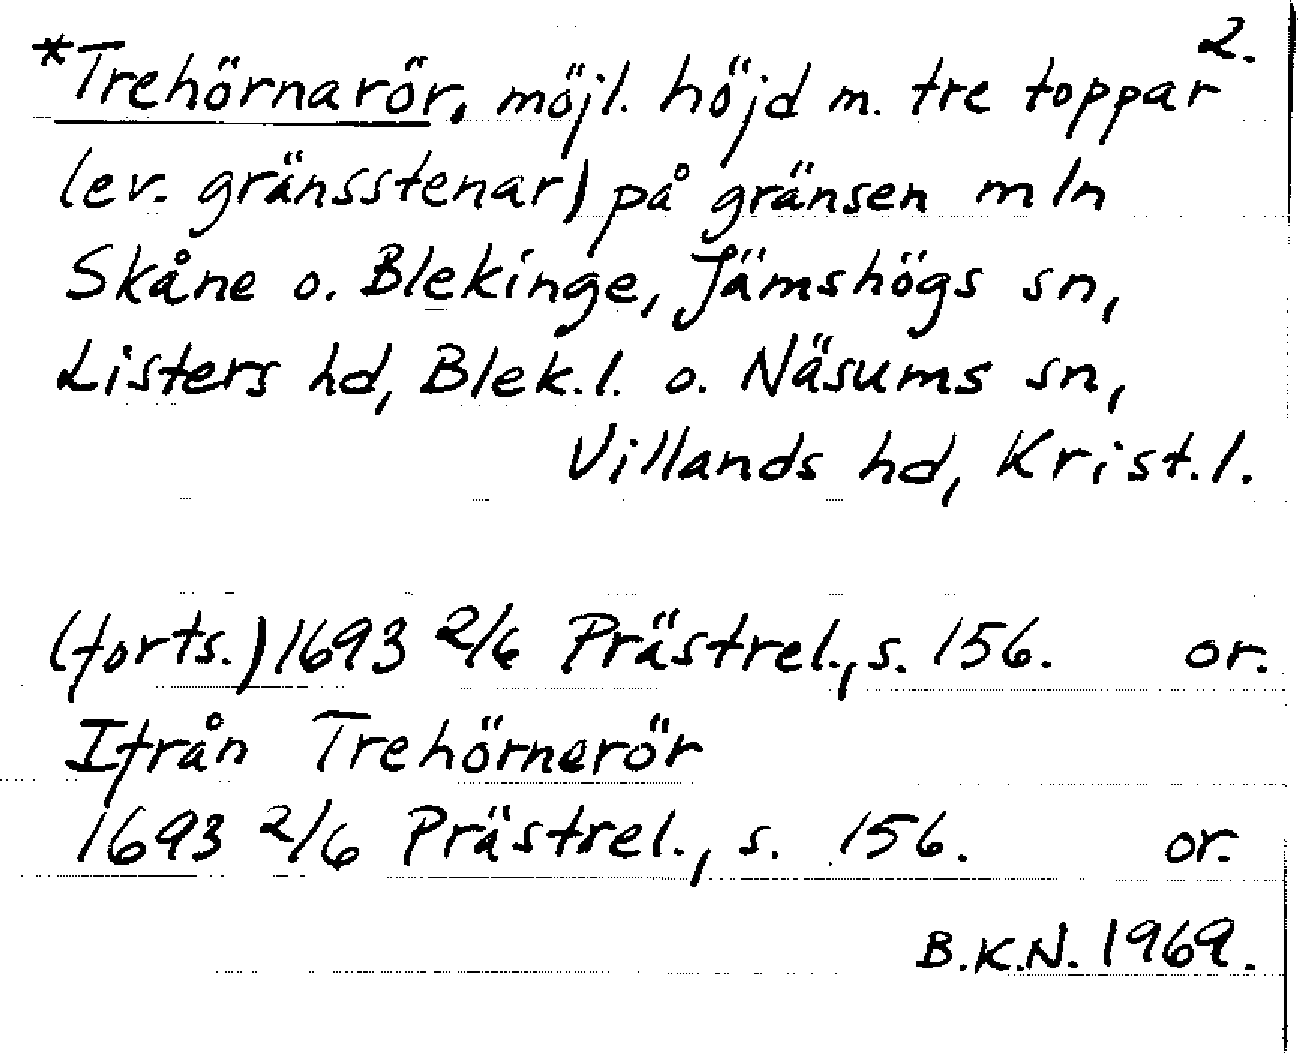 2.
*Trehörnarör, möjl. höjd m. tre toppar
(ev. gränsstenar) på gränsen mln
Skåne o. Blekinge, Jämshögs sn,
Listers hd, Blek.l. o. Näsums sn,
Villands hd, Krist.l.
(forts.) 1693 2/6 Prästrel., s. 156. or.
Ifrån Trehörnerör
1693 2/6 Prästrel., s. 156. or.
B.K.N. 1969.